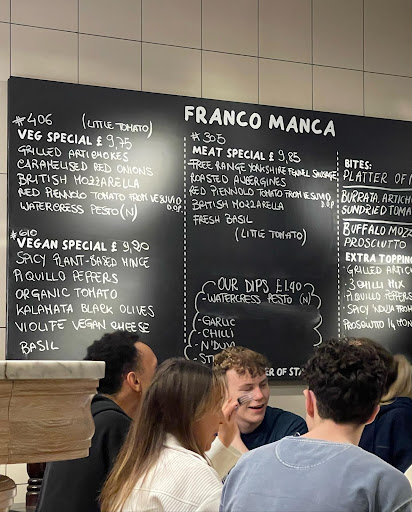 FRANCO MANCA
#406 (LITTLE TOMATO)
VEG SPECIAL £ 9,75
GRILLED ARTICHOKES
CARAMELISED RED ONIONS
BRITISH MOZZARELLA
RED PIENNOLO TOMATO FROM VESUVIO D.O.P
WATERCRESS PESTO (N)
#610
VEGAN SPECIAL £ 9,20
SPICY PLANT-BASED MINCE
PIQUILLO PEPPERS
ORGANIC TOMATO
KALAMATA BLACK OLIVES
VIOLIFE VEGAN CHEESE
BASIL
#305
MEAT SPECIAL £ 9,85
FREE RANGE YORKSHIRE FENNEL SAUSAGE
ROASTED AUBERGINES
RED PIENNOLO TOMATO FROM VESUVIO D.O.P
BRITISH MOZZARELLA
FRESH BASIL
(LITTLE TOMATO)
OUR DIPS £1.40
- WATERCRESS PESTO (N)
- GARLIC
- CHILLI
- N'DUJA
BITES:
PLATTER OF
BURRATA, ARTICH
SUNDRIED TOMA
BUFFALO MOZZ
PROSCIUTTO
EXTRA TOPPING
GRILLED ARTIC
3 CHILLI MIX
PIQUILLO PEPPERS
SPICY N'DUJA
PROSCIUTTO